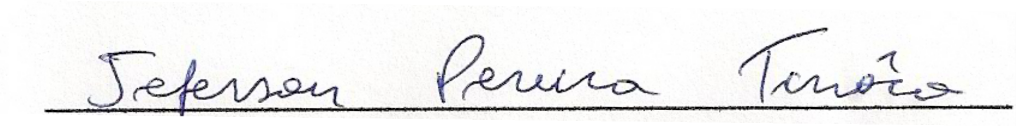 Jeferson Pereira Tinôco